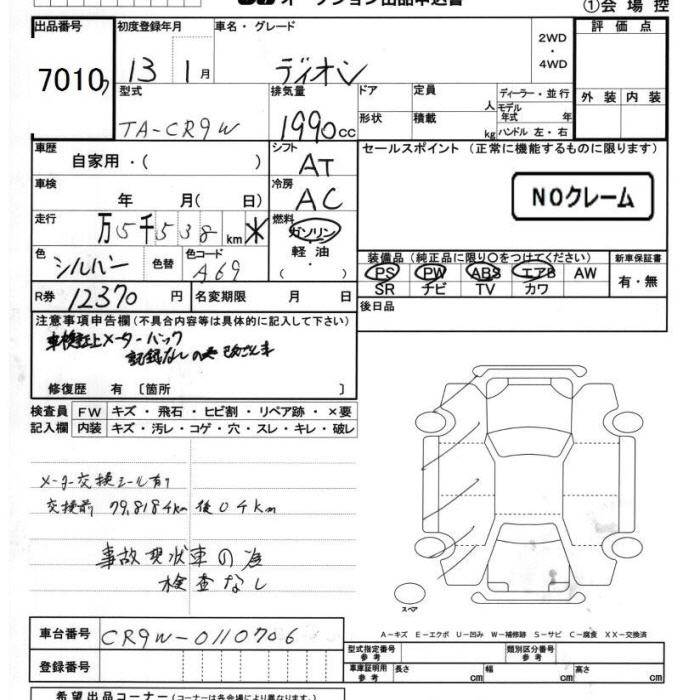 オークション出品申込書
①会場控
出品番号 初度登録年月 車名・グレード 評価点
7010 13 1月 ディオン 2WD・4WD
型式 排気量 ドア 定員 人 ディーラー・並行 外装 内装
TA-CR9W 1990cc 形状 積載 kg モデル年式 年
ハンドル 左・右
車歴 自家用・( ) シフト AT セールスポイント (正常に機能するものに限ります)
車検 年 月( 日) 冷房 AC NOクレーム
走行 万5千538km 燃料 ガソリン
軽油
・( )
色 シルバー 色替 色コード A69
装備品 (純正品に限り○をつけてください) 新車保証書
PS PW ABS エアB AW 有・無
SR ナビ TV カワ
R券 12370円 名変期限 月 日 後日品
注意事項申告欄 (不具合内容等は具体的に記入して下さい)
車検証上メーターバック
記録なしの為 改ざん車
修復歴 有 〔箇所 〕
検査員 FW キズ・飛石・ヒビ割・リペア跡・×要
記入欄 内装 キズ・汚レ・コゲ・穴・スレ・キレ・破レ
メーター交換シール有り
交換前 79,818.4km 後04km
事故現状車の為
検査なし
スペア
A−キズ E−エクボ U−凹み W−補修跡 S−サビ C−腐食 XX−交換済
車台番号 CR9W-0110706
登録番号
型式指定番号 参考 類別区分番号 参考
車庫証明用 参考 長さ cm 幅 cm 高さ cm
希望出品コーナー (コーナーは各会場により異なります。)